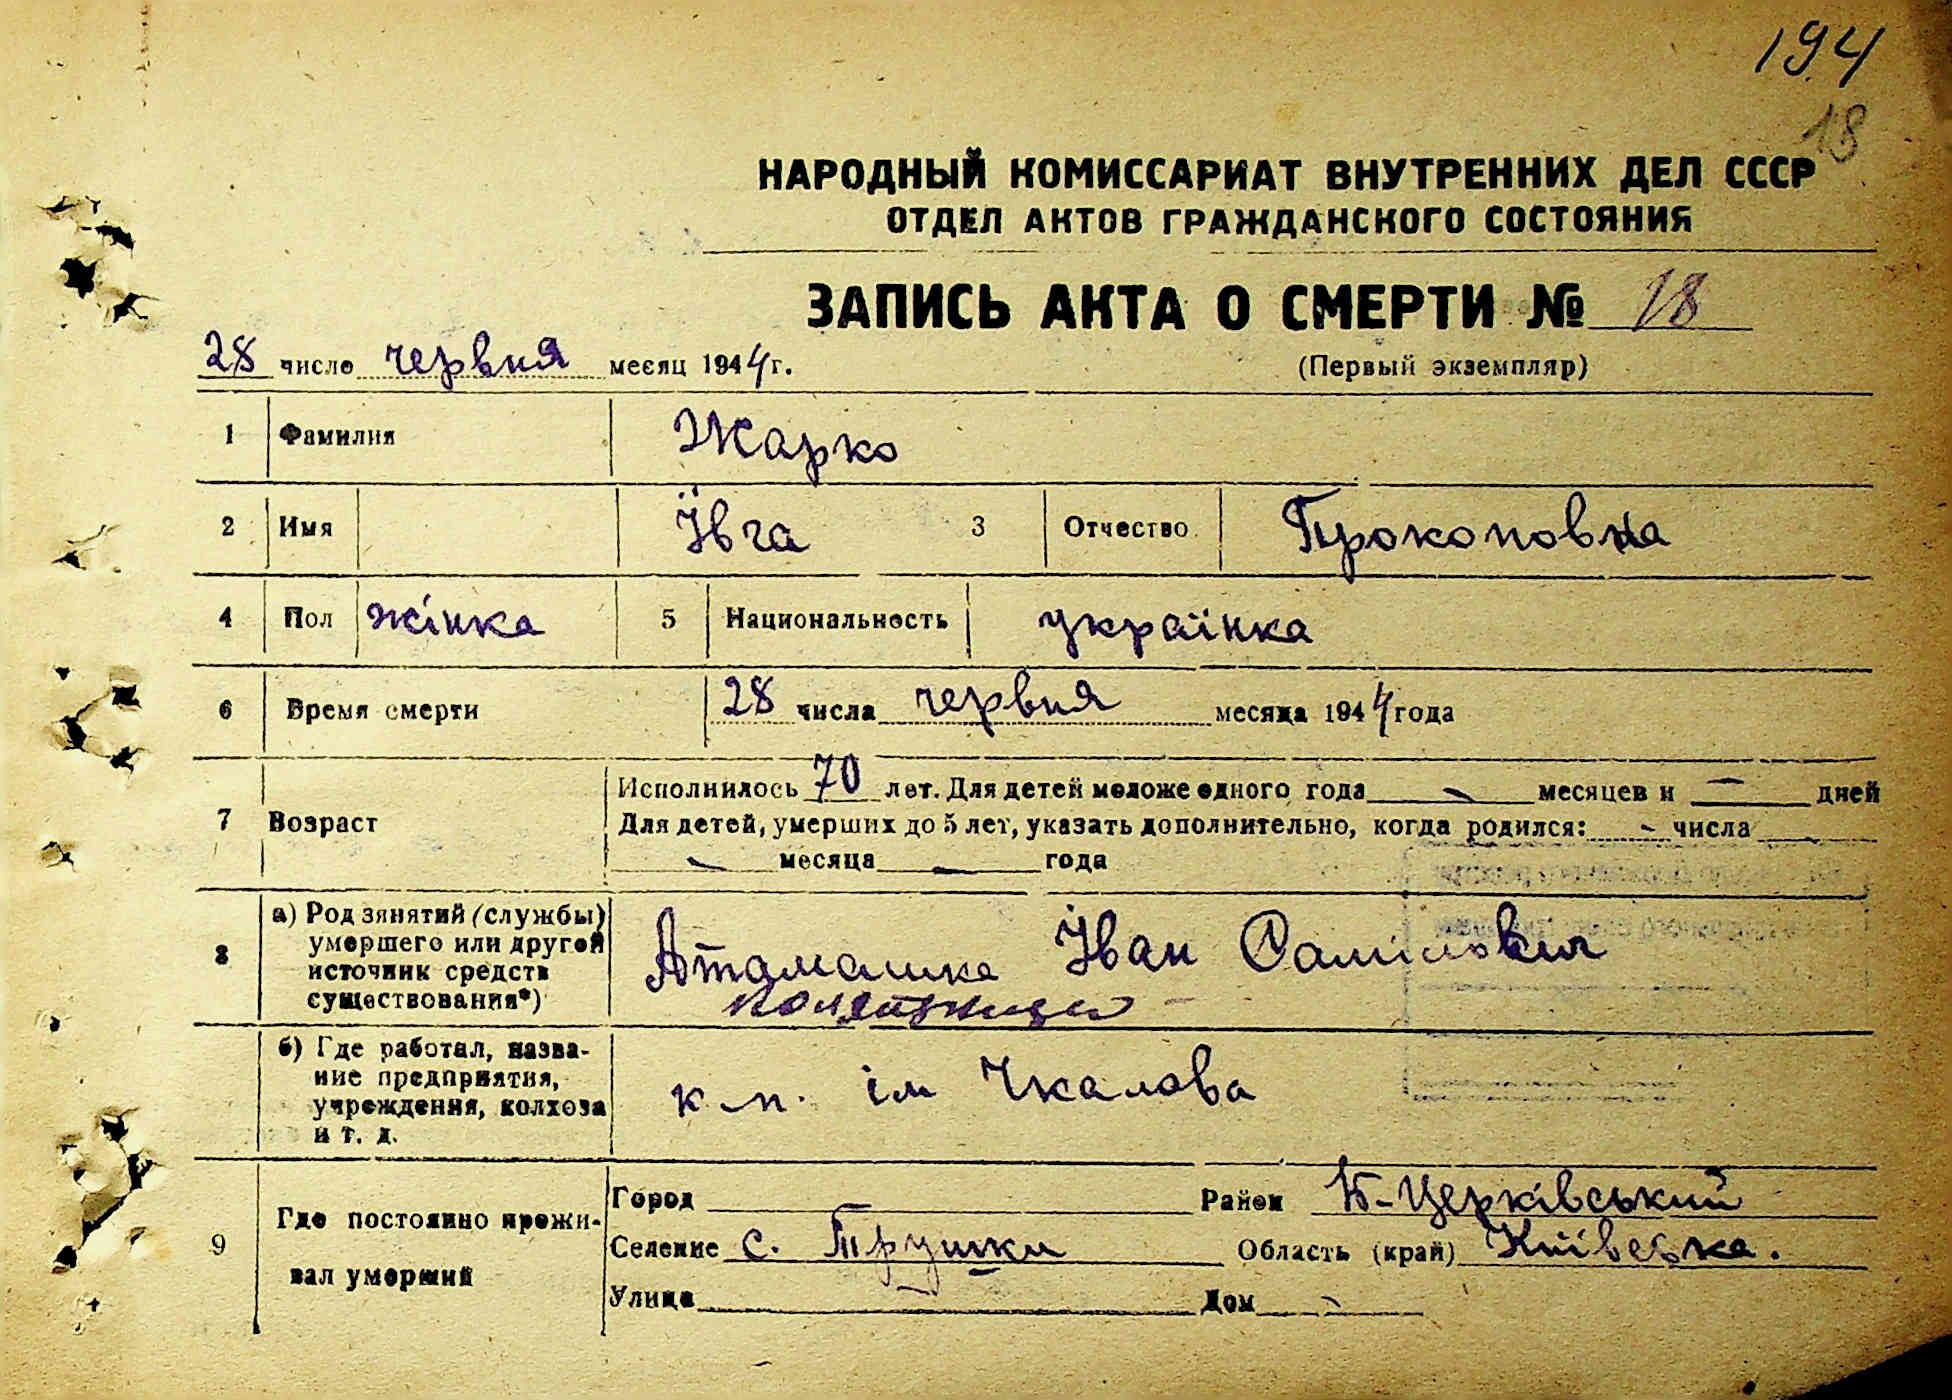 194
18
НАРОДНЫЙ КОМИССАРИАТ ВНУТРЕННИХ ДЕЛ СССР
ОТДЕЛ АКТОВ ГРАЖДАНСКОГО СОСТОЯНИЯ
ЗАПИСЬ АКТА О СМЕРТИ № 18
28 число червня месяц 1944 г. (Первый экземпляр)
1 Фамилия Жарко
2 Имя Ївга 3 Отчество Прокоповна
4 Пол жінка 5 Национальность українка
6 Время смерти 28 числа червня месяца 1944 года
Исполнилось 70 лет. Для детей моложе одного года - месяцев и - дней
7 Возраст Для детей, умерших до 5 лет, указать дополнительно, когда родился: - числа -
- месяца - года
8 а) Род занятий (службы) умершего или другой источник средств существования*) Иван
б) Где работал, название предприятия, учреждения, колхоза и т. д. ім Чкалова
9 Где постоянно проживал умерший
Город Район Б-Церківський
Селение с. Трушки Область (край) Київська.
Улица Дом -